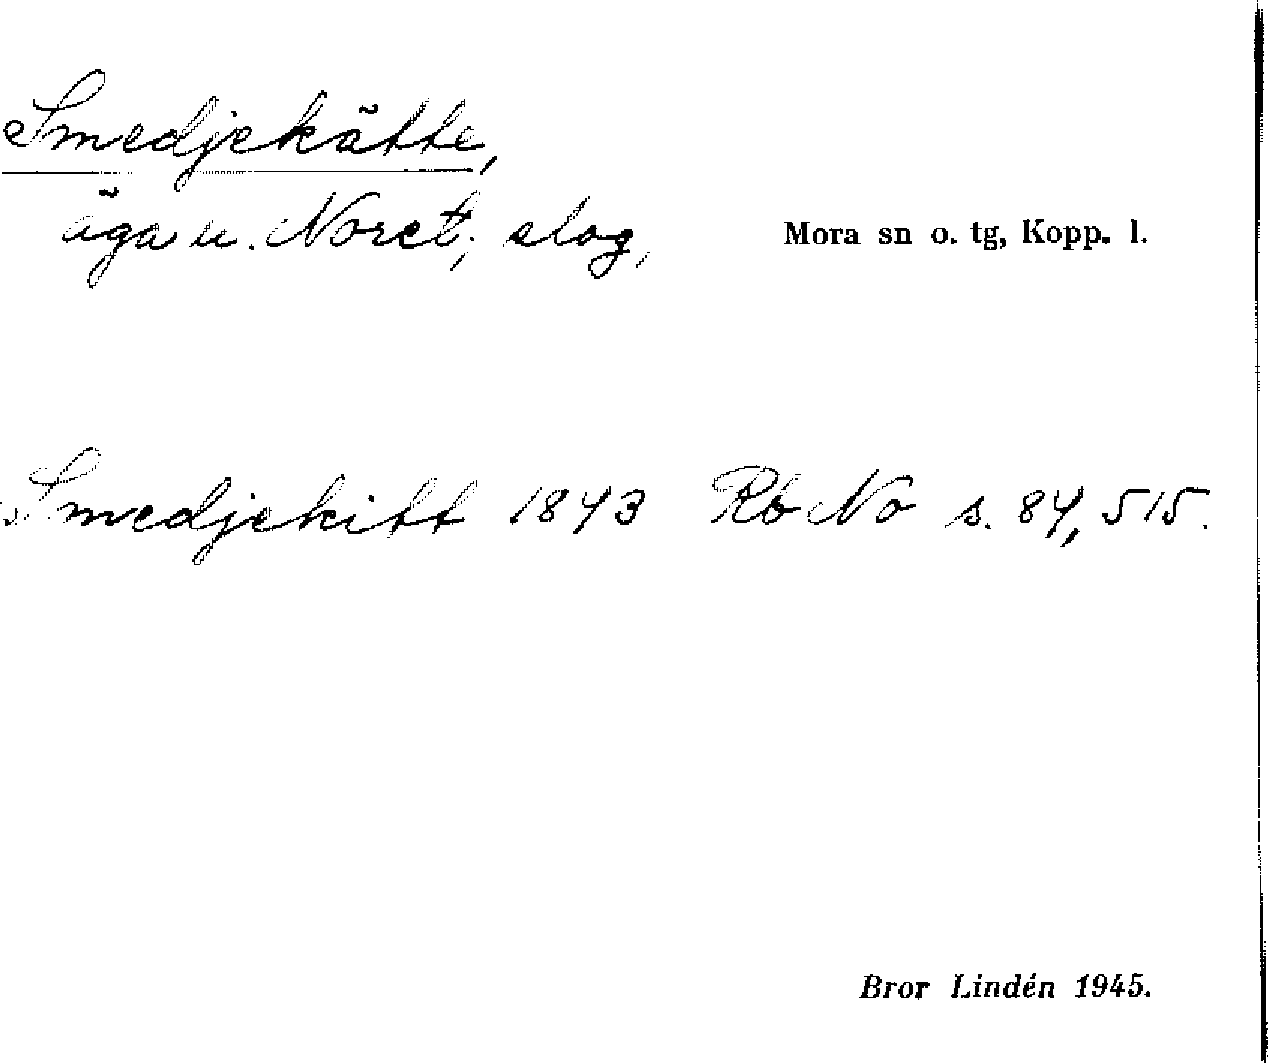 Smedjekätte,
äga u. Noret; slog,
Mora sn o. tg, Kopp. l.
Smedjekitt 1843 Rb No s. 84, 515.
Bror Lindén 1945.